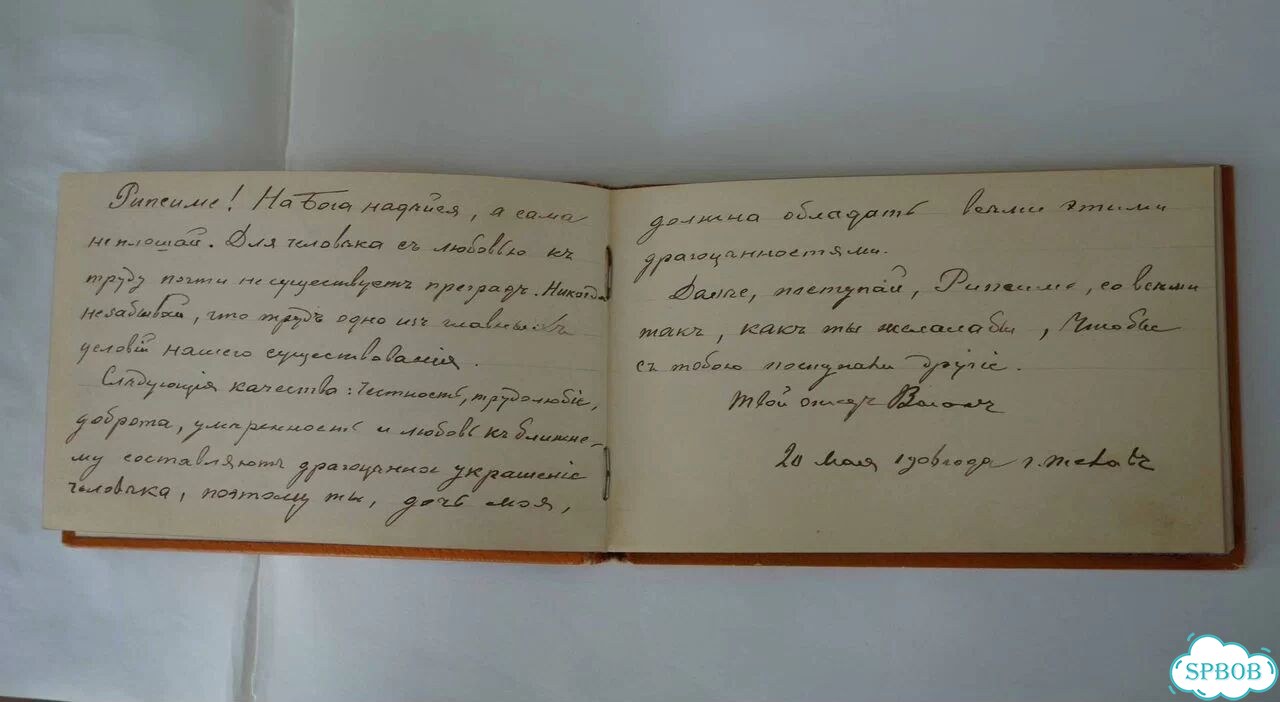 Рипсиме! На Бога надѣйся, а сама
не плошай. Для человѣка съ любовью къ
труду почти не существуетъ преградъ. Никогда
не забывай, что трудъ одно изъ главныхъ
условій нашего существованія.
Слѣдующія качества: честность, трудолюбіе,
доброта, умѣренность и любовь къ ближне-
му составляютъ драгоцѣнное украшеніе
человѣка, поэтому ты, дочь моя,
должна обладать всѣми этими
драгоцѣнностями.
Далѣе, поступай, Рипсиме, со всѣми
такъ, какъ ты желала бы, чтобы
съ тобою поступали другіе.
Твой отецъ
20 мая года г.
SPBOB